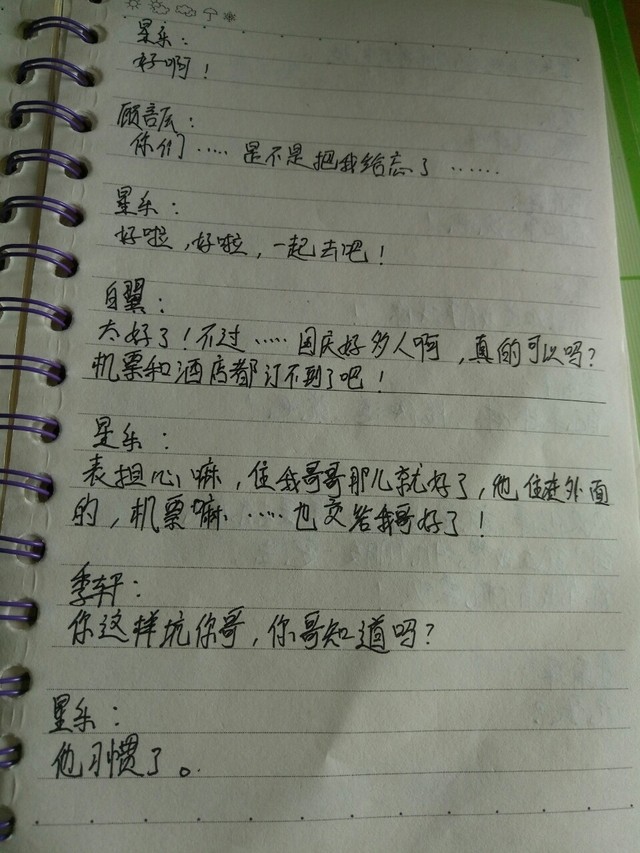 星乐：
好啊！
顾言辰：
你们……是不是把我给忘了……
星乐：
好啦，好啦，一起去吧！
自翼：
太好了！不过……国庆好多人啊，真的可以吗？
机票和酒店都订不到了吧！
星乐：
表担心嘛，住我哥哥那儿就好了，他住在外面
的，机票嘛……也交给我哥好了！
季轩：
你这样坑你哥，你哥知道吗？
星乐：
他习惯了。